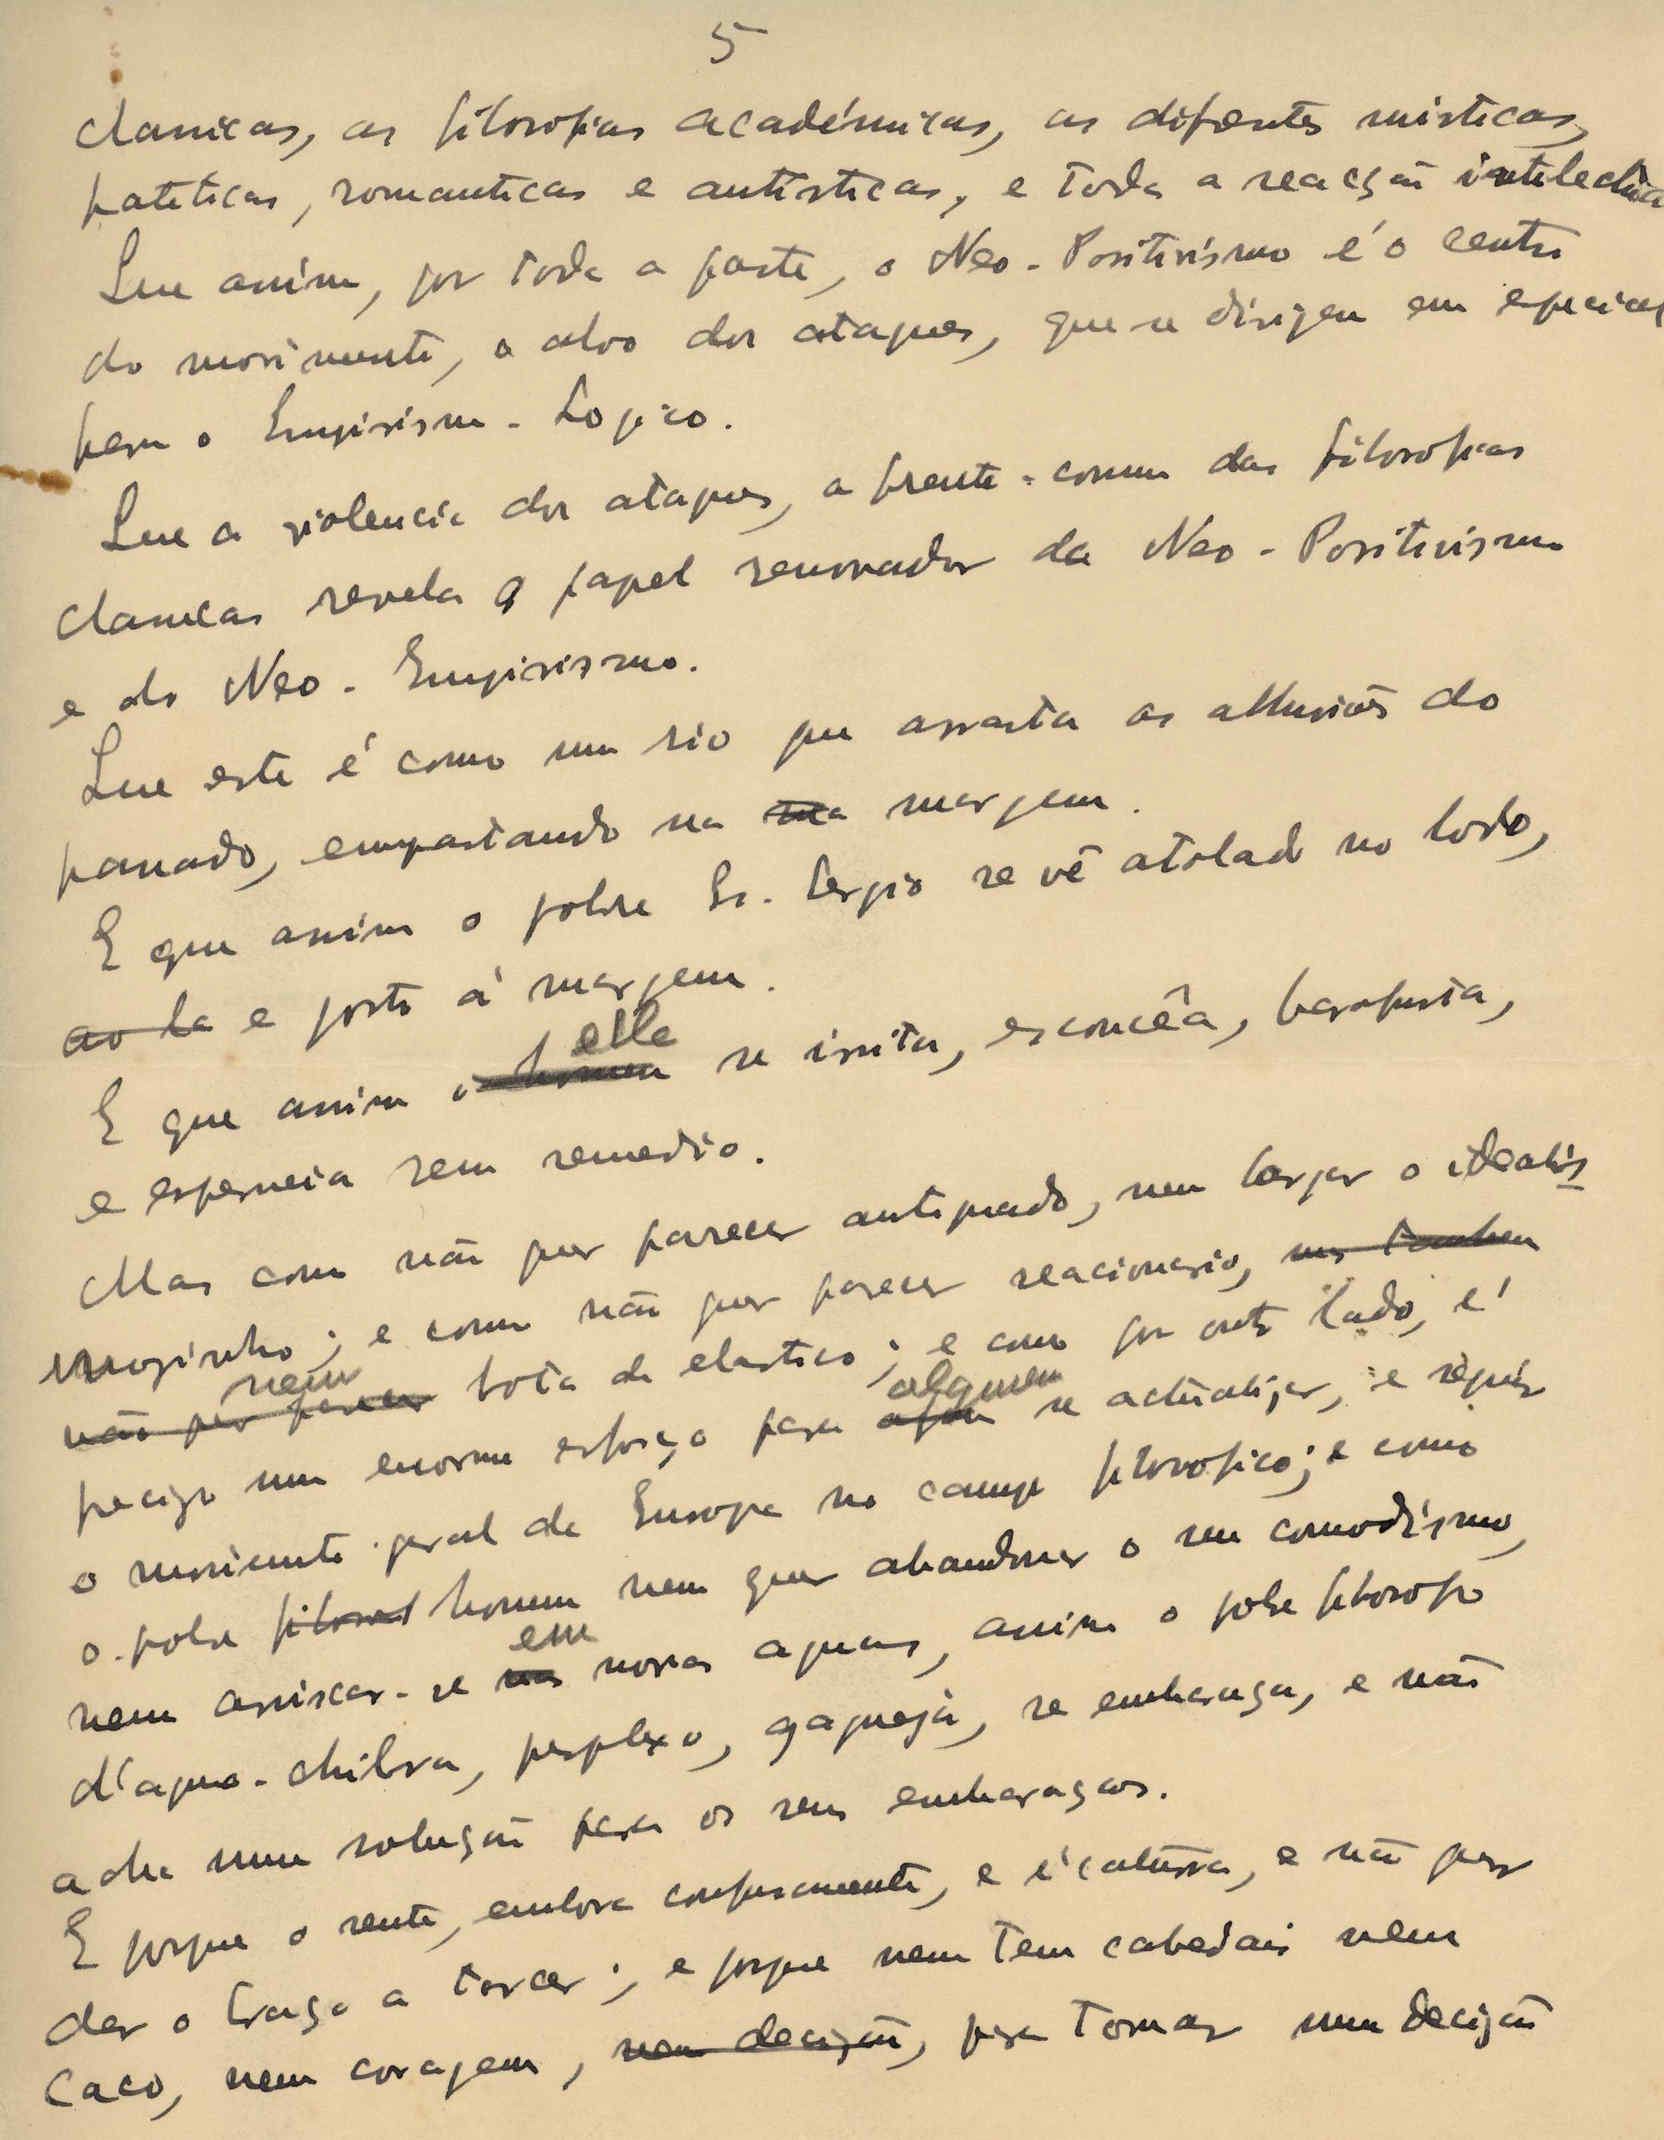 5
classicas, as filosofias académicas, as difrentes misticas,
pateticas, romanticas e artisticas, e toda a reacção intelectua
Que assim, por toda a parte, o Neo-Positivismo é o centro
do movimento, o alvo dos ataques, que se dirigem em especial
para o Empirismo-Logico.
Que a violencia dos ataques, a frente-comum das filosofias
classicas revela o papel renovador do Neo-Positivismo
e do Neo-Empirismo.
Que este é como um rio que arrasta as alluviões do
passado, empastando na ma margem.
E que assim o pobre Sr. Sergio se vê atolado no lodo,
ao la e posto á margem.
elle
E que assim o homem se irrita, esconcêa, barafusta,
e esperneia sem remedio.
Mas como não quer parecer antiquado, nem largar o idealis
mozinho; e como não quer parecer reacionario, mas tambem
nem
não quer parecer bota de elastico; e como por outro lado, é
alguem
preciso um enorme esforço para se actualizar, e seguir
o movimento geral da Europa no campo filosofico; e como
o pobre filosof homem nem quer abandonar o seu comodismo,
em
nem arriscar-se nas novas aguas, assim o pobre filosofo
d'agua-chilra, perplexo, gagueja, se embaraça, e não
acha uma solução para os seus embaraços.
E porque o sente, embora confusamente, e é caturra, e não quer
dar o braço a torcer; e porque nem tem cabedais nem
caco, nem coragem, nem decizão, para tomar uma decizão